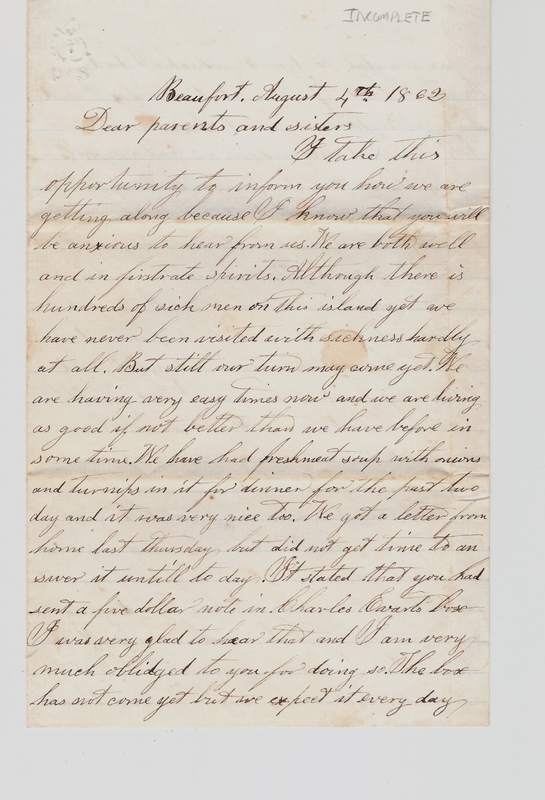 INCOMPLETE
Beaufort. August 4th 1862
Dear parents and sisters
I take this
opportunity to inform you how we are
getting along because I know that you will
be anxious to hear from us. We are both well
and in firstrate spirits. Although there is
hundreds of sick men on this island yet we
have never been visited with sickness hardly
at all. But still our turn may come yet. We
are having very easy times now and we are living
as good if not better than we have before in
some time. We have had freshmeat soup with onions
and turnips in it for dinner for the past two
day and it was very nice too. We got a letter from
home last Thursday but did not get time to an
swer it untill to day. It stated that you had
sent a five dollar note in Charles Ewarts box
I was very glad to hear that and I am very
much oblidged to you for doing so. The box
has not come yet but we expect it every day